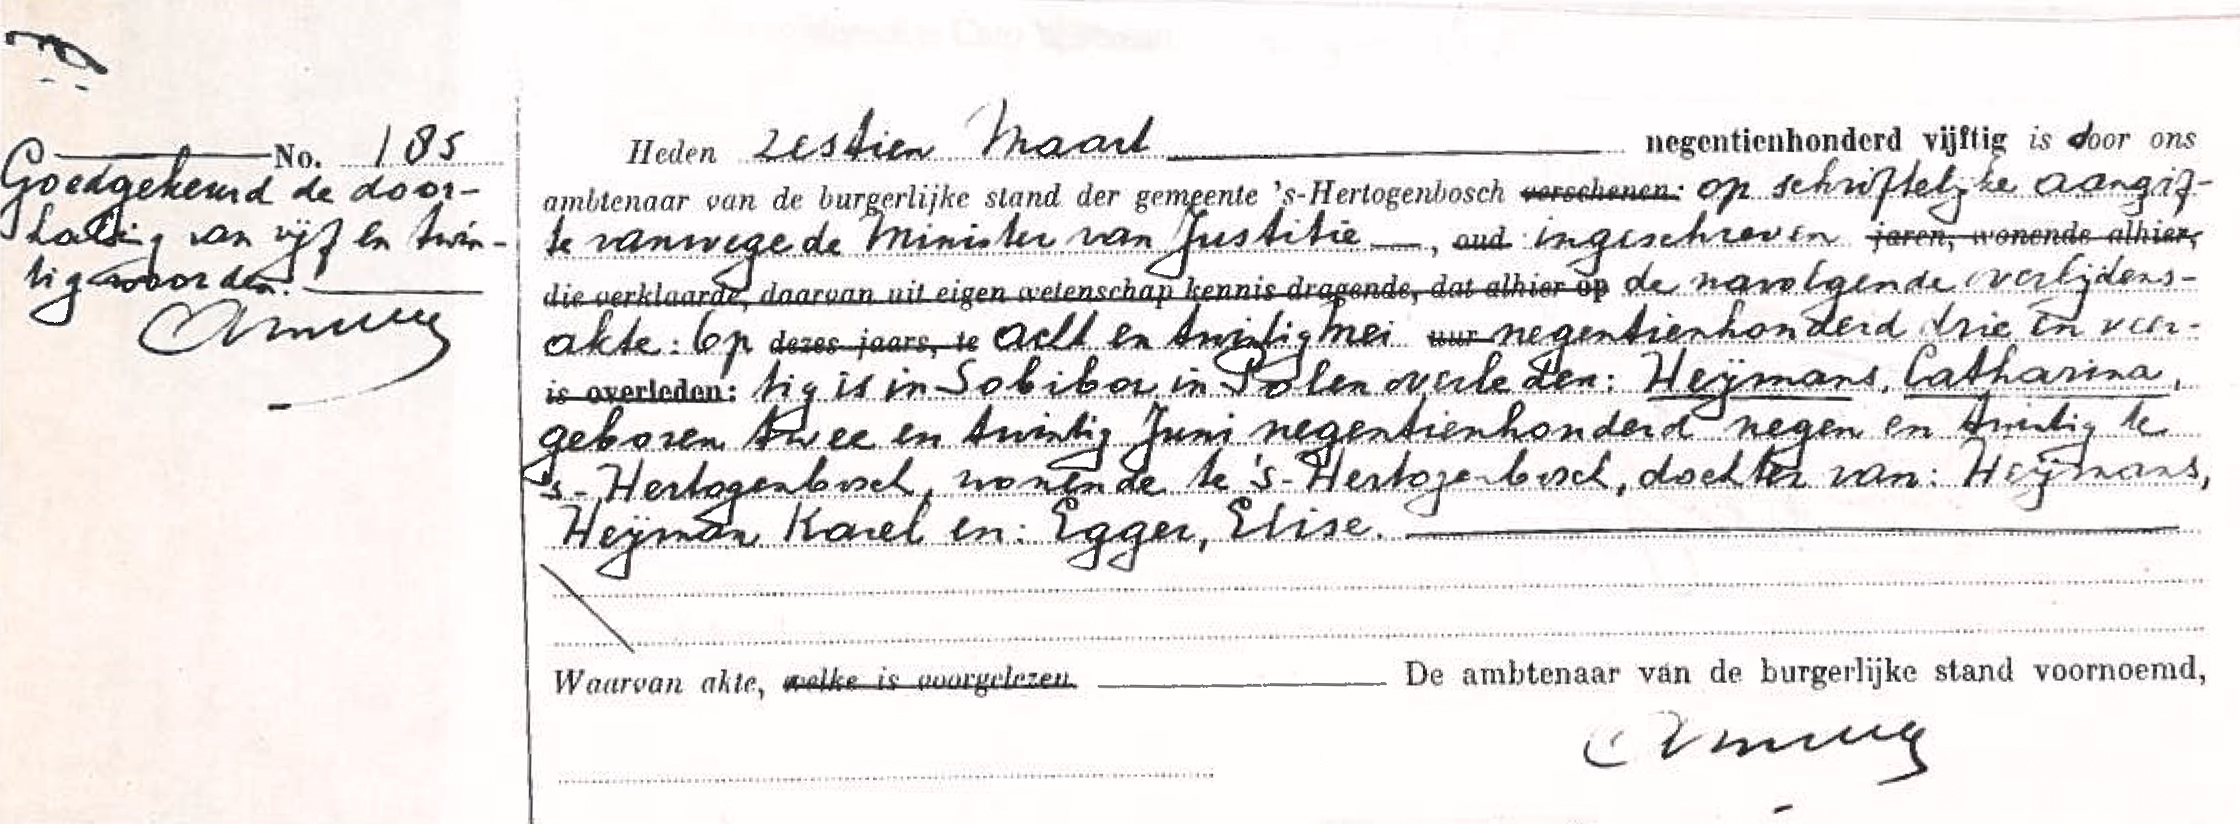 No. 185
Goedgekeurd de door-
haling van vijf en twin-
tig woorden.
Heden zestien Maart negentienhonderd vijftig is door ons
ambtenaar van de burgerlijke stand der gemeente 's-Hertogenbosch verschenen: op schriftelijke aangif-
te vanwege de Minister van Justitie, oud ingeschreven jaren, wonende alhier,
die verklaarde, daarvan uit eigen wetenschap kennis dragende, dat alhier op de navolgende overlijdens-
akte: Op dezes jaars, te acht en twintig Mei uur negentienhonderd drie en veer-
is overleden: tig is in Sobibor in Polen overleden: Heijmans, Catharina,
geboren twee en twintig Juni negentienhonderd negen en twintig te
's-Hertogenbosch, wonende te 's-Hertogenbosch, dochter van: Heijmans,
Heijman Karel en: Egger, Elise.
Waarvan akte, welke is voorgelezen. De ambtenaar van de burgerlijke stand voornoemd,